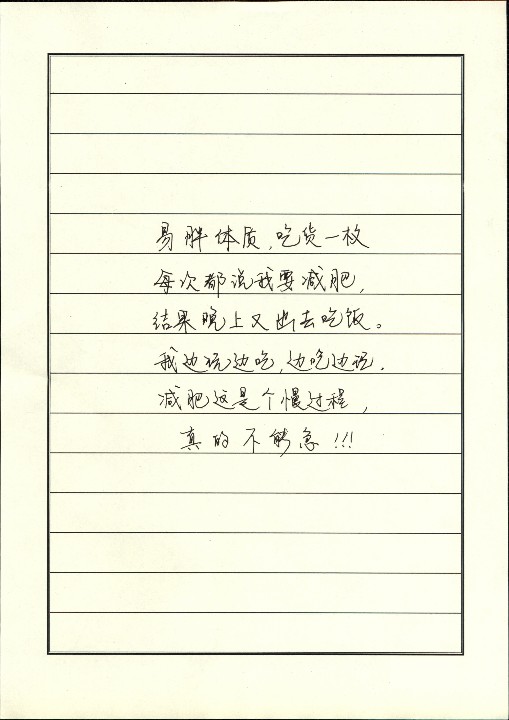 易胖体质,吃货一枚
每次都说我要减肥,
结果晚上又出去吃饭。
我边玩边吃,边吃边说,
减肥这是个慢过程,
真的不能急!!!